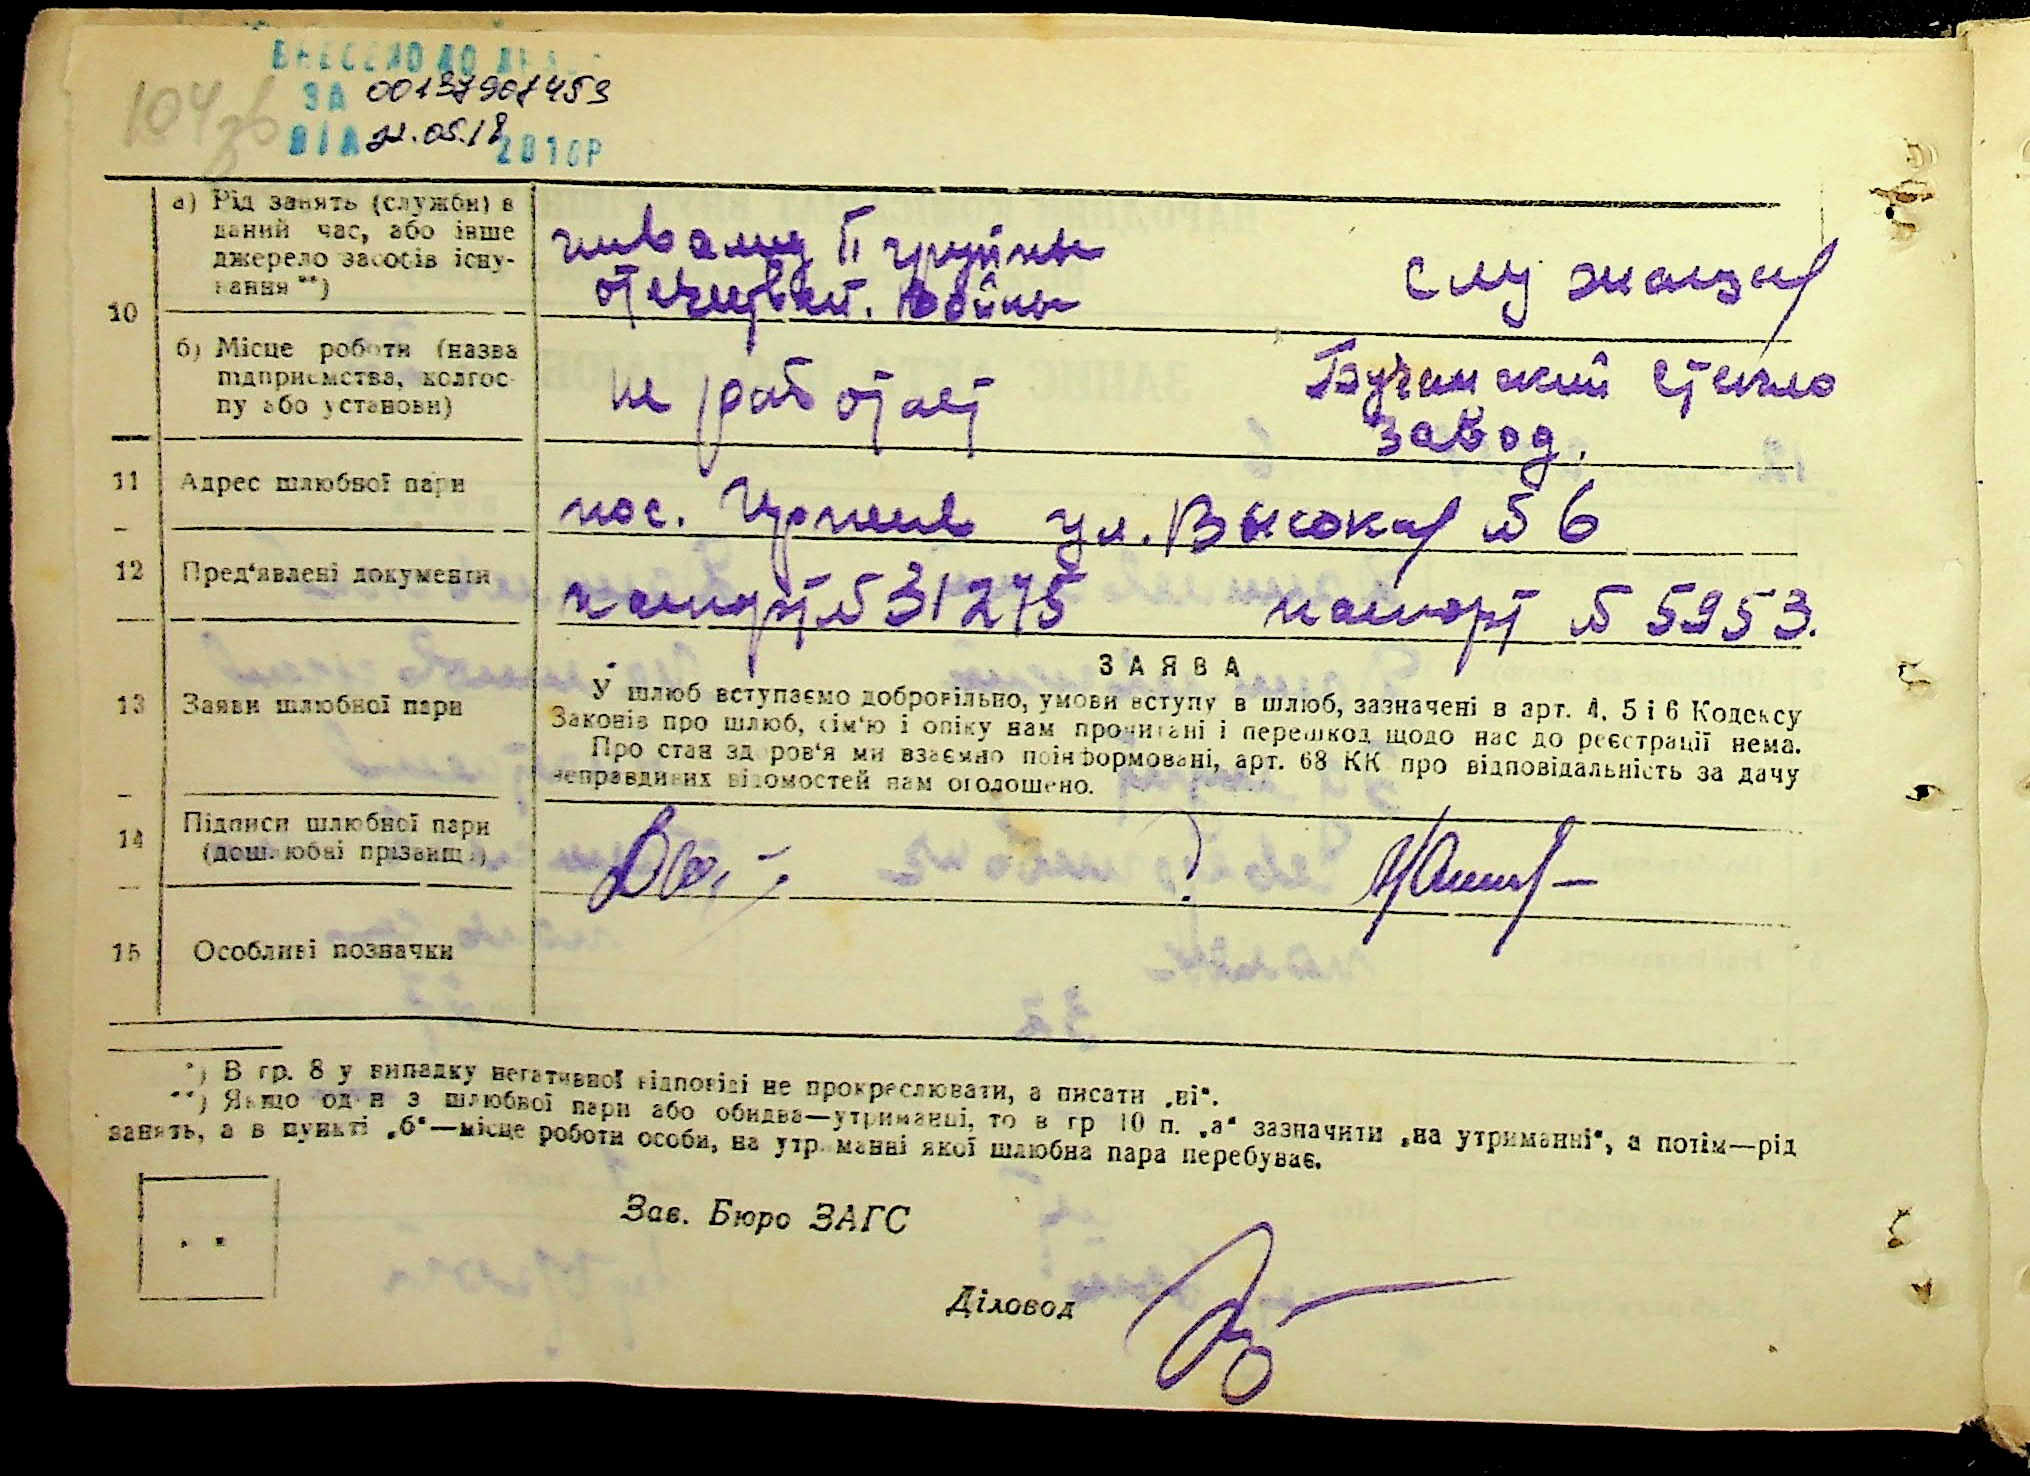 ВНЕСЕНО ДО
104зв
ЗА 00137901453
ВІД 21.05.18 201 Р
10
а) Рід занять (служби) в даний час, або інше джерело засобів існування **)
инвалид II группы
отечествен. войны
служащая
б) Місце роботи (назва підприємства, колгоспу або установи)
не работает
Бучанский стекло
завод.
11 Адрес шлюбної пари
пос. Ирпень ул. Высокая № 6
12 Пред'явлені документи
паспорт № 31275 паспорт № 5953.
ЗАЯВА
13 Заяви шлюбної пари
У шлюб вступаємо добровільно, умови вступу в шлюб, зазначені в арт. 4, 5 і 6 Кодексу
Законів про шлюб, сім'ю і опіку нам прочитані і перешкод щодо нас до реєстрації нема.
Про стан здоров'я ми взаємно поінформовані, арт. 68 КК про відповідальність за дачу
неправдивих відомостей нам оголошено.
14 Підписи шлюбної пари
(дошлюбні прізвища)
15 Особливі позначки
*) В гр. 8 у випадку негативної відповіді не прокреслювати, а писати „ні“.
**) Якщо один з шлюбної пари або обидва—утриманці, то в гр 10 п. „а“ зазначити „на утриманні“, а потім—рід
занять, а в пункті „б“—місце роботи особи, на утриманні якої шлюбна пара перебуває.
Зав. Бюро ЗАГС
Діловод